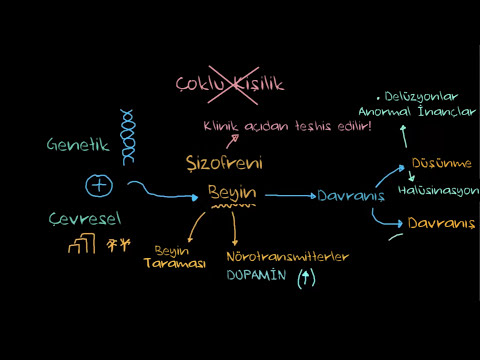 Çoklu Kişilik
• Delüzyonlar
Anormal İnançlar
Klinik açıdan teşhis edilir!
Genetik
Şizofreni
Düşünme
Beyin
Davranış
Halüsinasyon
Çevresel
Davranış
Beyin
Taraması
Nörotransmitterler
DOPAMİN (↑)